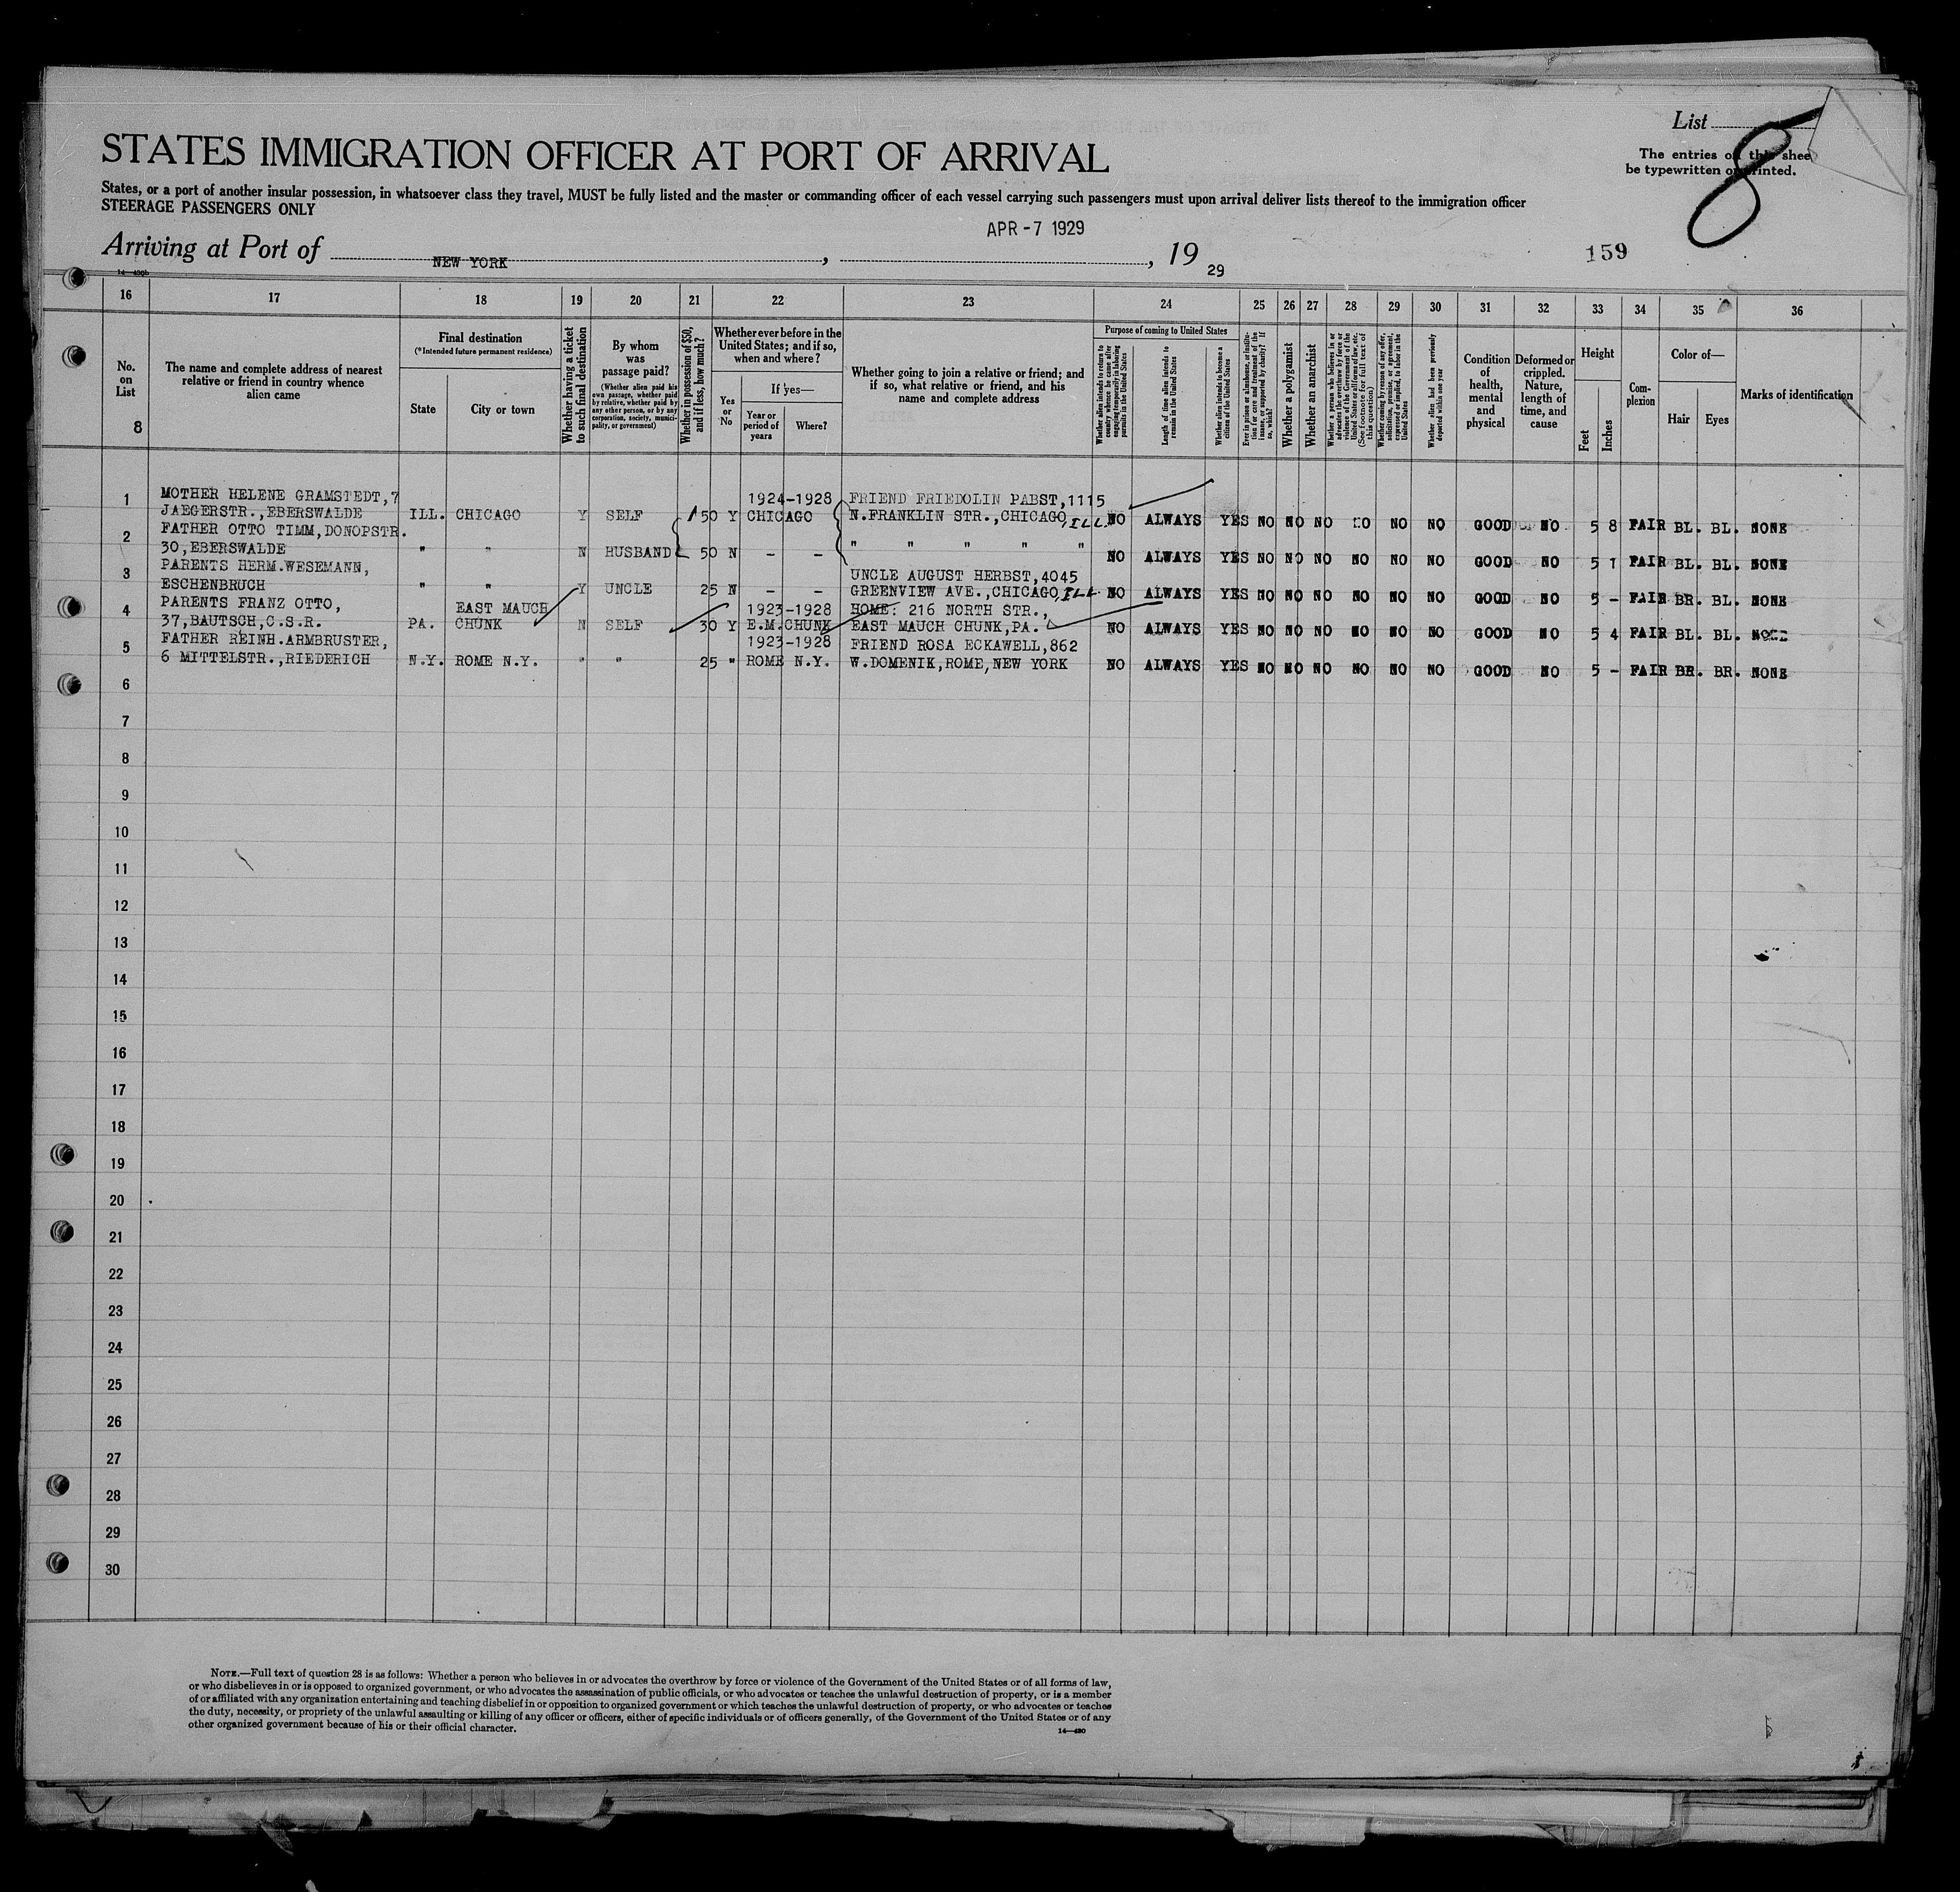 List
8
The entries on this shee
be typewritten or printed.
STATES IMMIGRATION OFFICER AT PORT OF ARRIVAL
States, or a port of another insular possession, in whatsoever class they travel, MUST be fully listed and the master or commanding officer of each vessel carrying such passengers must upon arrival deliver lists thereof to the immigration officer
STEERAGE PASSENGERS ONLY
APR -7 1929
Arriving at Port of NEW YORK , , 19 29
159
14—430b
16 17 18 19 20 21 22 23 24 25 26 27 28 29 30 31 32 33 34 35 36
No. on List
8
The name and complete address of nearest relative or friend in country whence alien came
Final destination
(*Intended future permanent residence)
State
City or town
Whether having a ticket to such final destination
By whom was passage paid?
(Whether alien paid his own passage, whether paid by relative, whether paid by any other person, or by any corporation, society, municipality, or government)
Whether in possession of $50, and if less, how much?
Whether ever before in the United States; and if so, when and where?
Yes or No
If yes—
Year or period of years
Where?
Whether going to join a relative or friend; and if so, what relative or friend, and his name and complete address
Purpose of coming to United States
Whether alien intends to return to country whence he came after engaging temporarily in laboring pursuits in the United States
Length of time alien intends to remain in the United States
Whether alien intends to become a citizen of the United States
Ever in prison or almshouse, or institution for care and treatment of the insane, or supported by charity? If so, which?
Whether a polygamist
Whether an anarchist
Whether a person who believes in or advocates the overthrow by force or violence of the Government of the United States or all forms of law, etc. (See footnote for full text of this question)
Whether coming by reason of any offer, solicitation, promise, or agreement, expressed or implied, to labor in the United States
Whether alien had been previously deported within one year
Condition of health, mental and physical
Deformed or crippled. Nature, length of time, and cause
Height
Feet
Inches
Complexion
Color of—
Hair
Eyes
Marks of identification
1 MOTHER HELENE GRAMSTEDT,7 1924-1928 FRIEND FRIEDOLIN PABST,1115
JAEGERSTR.,EBERSWALDE ILL. CHICAGO Y SELF 150 Y CHICAGO N.FRANKLIN STR.,CHICAGO, ILL. NO ALWAYS YES NO NO NO NO NO NO GOOD NO 5 8 FAIR BL. BL. NONE
2 FATHER OTTO TIMM,DONOPSTR.
30,EBERSWALDE " " N HUSBAND 50 N - - " " " " " NO ALWAYS YES NO NO NO NO NO NO GOOD NO 5 1 FAIR BL. BL. NONE
3 PARENTS HERM.WESEMANN, UNCLE AUGUST HERBST,4045
ESCHENBRUCH " " Y UNCLE 25 N - - GREENVIEW AVE.,CHICAGO, ILL. NO ALWAYS YES NO NO NO NO NO NO GOOD NO 5 - FAIR BR. BL. NONE
4 PARENTS FRANZ OTTO, EAST MAUCH 1923-1928 HOME: 216 NORTH STR.,
37,BAUTSCH,C.S.R. PA. CHUNK N SELF 30 Y E.M.CHUNK EAST MAUCH CHUNK,PA. NO ALWAYS YES NO NO NO NO NO NO GOOD NO 5 4 FAIR BL. BL. NONE
5 FATHER REINH.ARMBRUSTER, 1923-1928 FRIEND ROSA ECKAWELL,862
6 MITTELSTR.,RIEDERICH N.Y. ROME N.Y. " " 25 " ROME N.Y. W.DOMENIK,ROME,NEW YORK NO ALWAYS YES NO NO NO NO NO NO GOOD NO 5 - FAIR BR. BR. NONE
6
7
8
9
10
11
12
13
14
15
16
17
18
19
20
21
22
23
24
25
26
27
28
29
30
NOTE.—Full text of question 28 is as follows: Whether a person who believes in or advocates the overthrow by force or violence of the Government of the United States or of all forms of law,
or who disbelieves in or is opposed to organized government, or who advocates the assassination of public officials, or who advocates or teaches the unlawful destruction of property, or is a member
of or affiliated with any organization entertaining and teaching disbelief in or opposition to organized government or which teaches the unlawful destruction of property, or who advocates or teaches
the duty, necessity, or propriety of the unlawful assaulting or killing of any officer or officers, either of specific individuals or of officers generally, of the Government of the United States or of any
other organized government because of his or their official character.
14—430